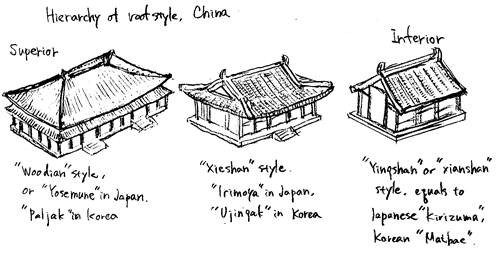 Hierarchy of roof style, China
Superior
Inferior
"Woodian" style,
or "Yosemune" in Japan.
"Paljak" in Korea
"Xieshan" style.
"Irimoya" in Japan,
"Ujingak" in Korea
"Yingshan" or "xianshan"
style, equals to
Japanese "Kirizuma",
Korean "Matbae".